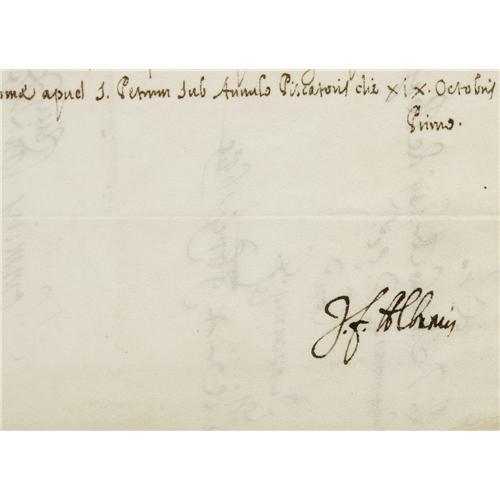 omæ apud S. Petrum sub Annulo Piscatoris die XIX. Octobris
Primo.
J. f. Albanis